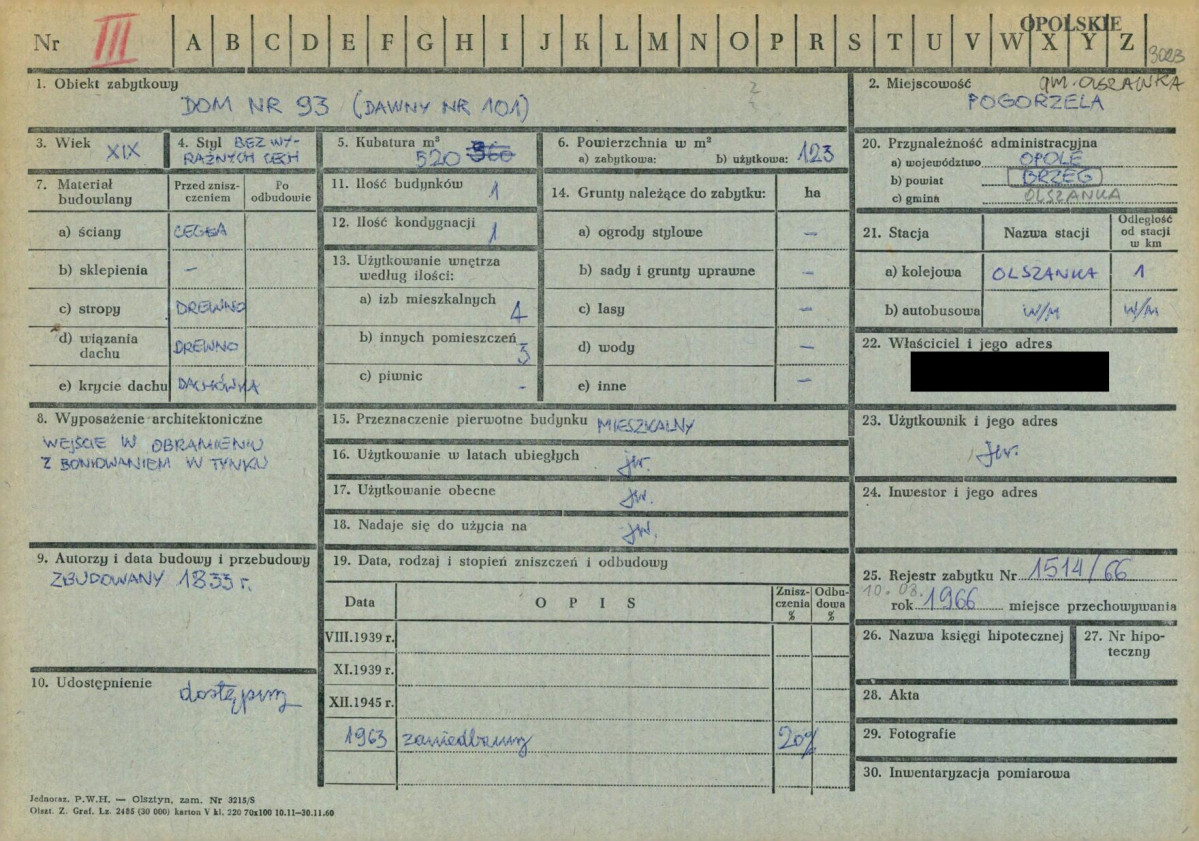 OPOLSKIE
Nr III A B C D E F G H I J K L M N O P R S T U V W X Y Z
3023
1. Obiekt zabytkowy
DOM NR 93 (DAWNY NR 101)
2. Miejscowość gm. OLSZANKA
POGORZELA
3. Wiek XIX
4. Styl BEZ WY-
RAŹNYCH CECH
5. Kubatura m³
520 360
6. Powierzchnia w m²
a) zabytkowa: b) użytkowa: 123
7. Materiał
budowlany
Przed znisz-
czeniem
Po
odbudowie
a) ściany CEGŁA
b) sklepienia –
c) stropy DREWNO
d) wiązania
dachu DREWNO
e) krycie dachu DACHÓWKA
8. Wyposażenie architektoniczne
WEJŚCIE W OBRAMIENIU
Z BONIOWANIEM W TYNKU
9. Autorzy i data budowy i przebudowy
ZBUDOWANY 1833 r.
10. Udostępnienie dostępny
11. Ilość budynków 1
12. Ilość kondygnacji 1
13. Użytkowanie wnętrza
według ilości:
a) izb mieszkalnych 4
b) innych pomieszczeń 3
c) piwnic -
14. Grunty należące do zabytku: ha
a) ogrody stylowe –
b) sady i grunty uprawne –
c) lasy –
d) wody –
e) inne –
15. Przeznaczenie pierwotne budynku MIESZKALNY
16. Użytkowanie w latach ubiegłych jw.
17. Użytkowanie obecne jw.
18. Nadaje się do użycia na jw.
19. Data, rodzaj i stopień zniszczeń i odbudowy
Data OPIS Znisz-
czenia
% Odbu-
dowa
%
VIII.1939 r.
XI.1939 r.
XII.1945 r.
1963 zaniedbany 20%
20. Przynależność administracyjna
a) województwo OPOLE
b) powiat BRZEG
c) gmina OLSZANKA
21. Stacja Nazwa stacji Odległość
od stacji
w km
a) kolejowa OLSZANKA 1
b) autobusowa W/M W/M
22. Właściciel i jego adres
23. Użytkownik i jego adres
jw.
24. Inwestor i jego adres
25. Rejestr zabytku Nr 1514/66
10.03.
rok 1966 miejsce przechowywania
26. Nazwa księgi hipotecznej
27. Nr hipo-
teczny
28. Akta
29. Fotografie
30. Inwentaryzacja pomiarowa
Jednoraz. P.W.H. — Olsztyn, zam. Nr 3215/S
Olszt. Z. Graf. Lz. 2485 (30 000) karton V kl. 220 70x100 10.11—30.11.60